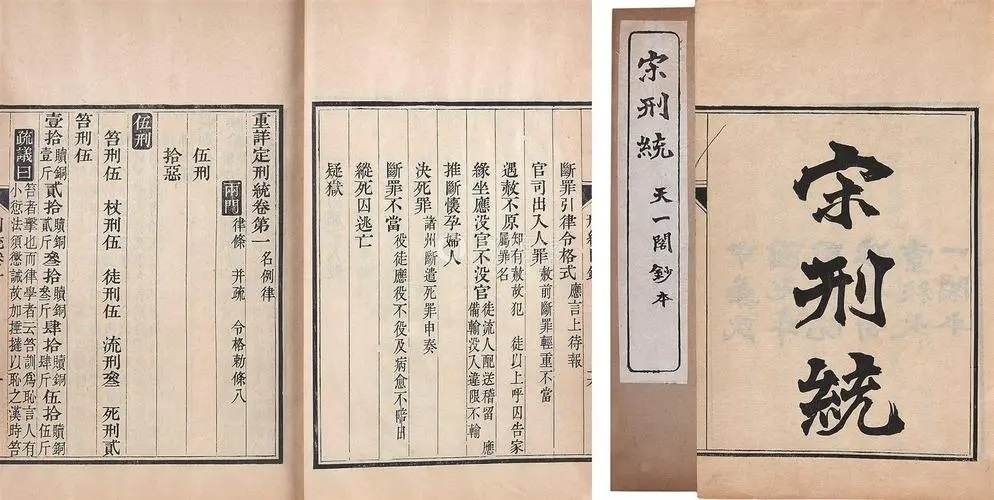 宋刑統
宋刑統
天一閣鈔本
斷罪引律令格式 應言上待報
官司出入人罪 赦前斷罪輕重不當
遇赦不原 知有赦故犯 徒以上呼囚告家屬罪名
緣坐應没官不没官 徒流人配送稽留 應備輸没入違限不輸
推斷懷孕婦人
決死罪 諸州斷遣死罪申奏
斷罪不當 役徒應役不役及病愈不陪日
縱死囚逃亡
疑獄
重詳定刑統卷第一 名例律
兩門 律條 并疏 令格勅條八
伍刑
拾惡
伍刑
笞刑伍 杖刑伍 徒刑伍 流刑叁 死刑貳
笞刑伍
壹拾 贖銅壹斤 貳拾 贖銅貳斤 叁拾 贖銅叁斤 肆拾 贖銅肆斤 伍拾 贖銅伍斤
疏議曰 笞者擊也而律學者云笞訓爲恥言人有小愆法須懲誡故加捶撻以恥之漢時笞